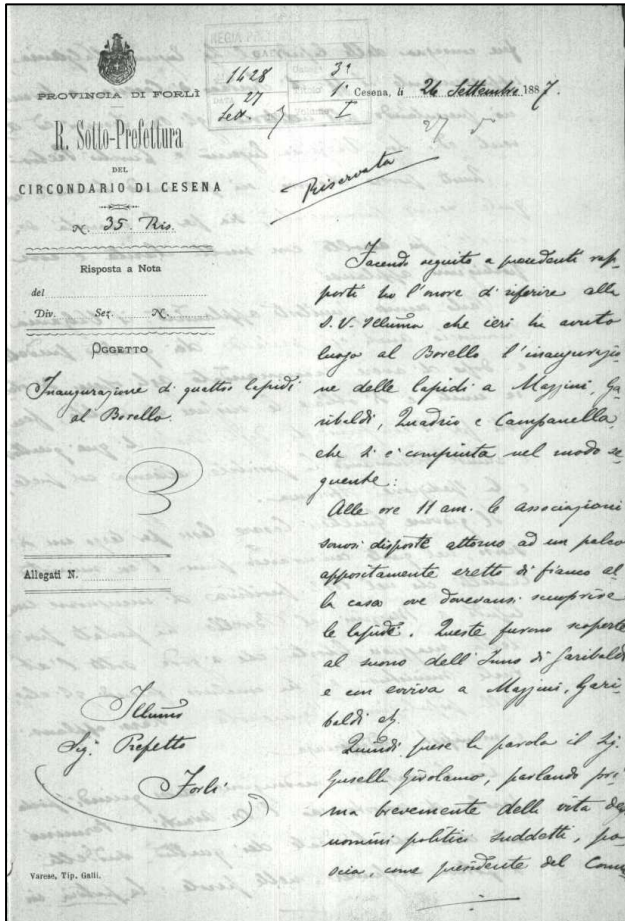 PROVINCIA DI FORLÌ
R. Sotto-Prefettura
DEL
CIRCONDARIO DI CESENA
N. 35. Ris.
Risposta a Nota
del
Div. Sez. N.
OGGETTO
Inaugurazione di quattro lapidi
al Borello.
3
Allegati N.
Illmo
Sig. Prefetto
Forlì
Varese, Tip. Galli.
REGIA
1428
27
Sett.
3a
1a
I
Cesena, li 26 Settembre 1887.
27 5
Riservata
Facendo seguito a precedenti rap-
porti ho l'onore di riferire alla
S.V. Illuma che ieri ha avuto
luogo al Borello l'inaugurazio-
ne delle lapidi a Mazzini, Ga-
ribaldi, Quadrio e Campanella,
che si è compiuta nel modo se-
guente:
Alle ore 11 am. le associazioni
sonosi disposte attorno ad un palco
appositamente eretto di fianco al-
la casa ove dovevansi scoprire
le lapidi. Queste furono scoperte
al suono dell'Inno di Garibaldi
e con evviva a Mazzini, Gari-
baldi
Quindi prese la parola il Sig.
Guselli Girolamo, parlando pri-
ma brevemente della vita degli
uomini politici suddetti, po-
scia, come presidente del Comi-